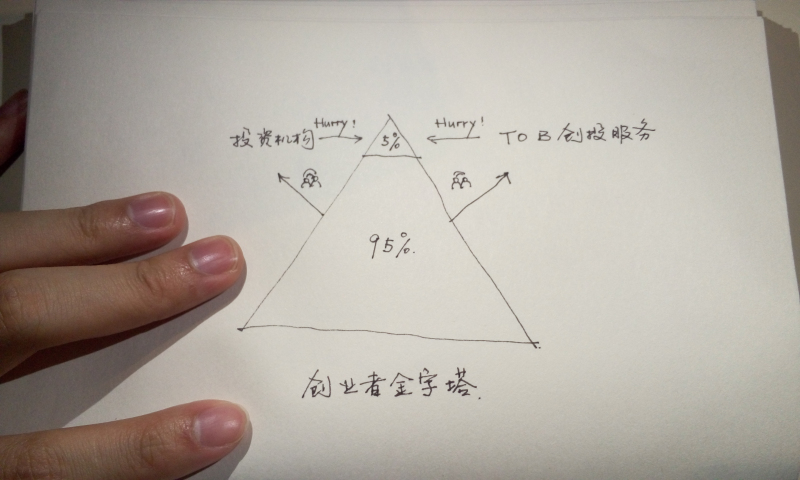 Hurry!
Hurry!
投资机构
5%
TO B 创投服务
95%.
创业者金字塔.